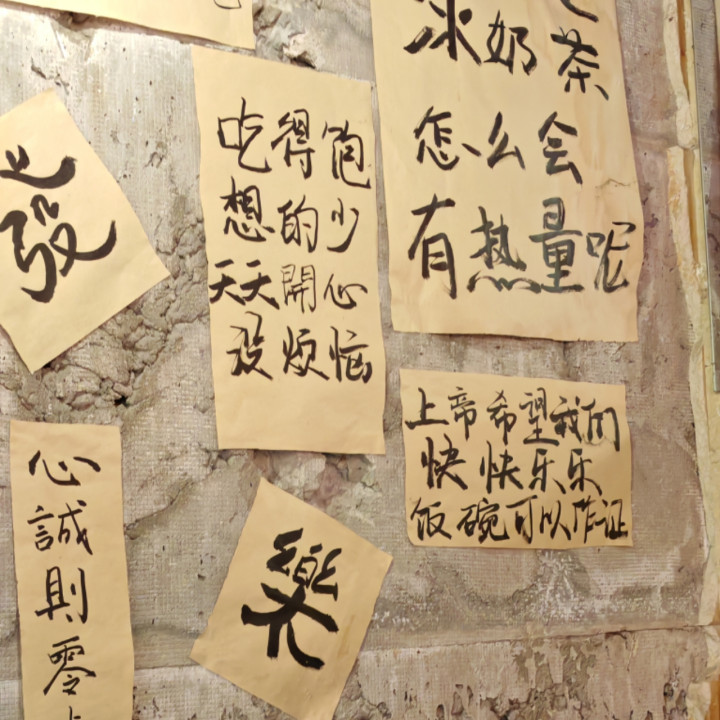 發
吃得飽
想的少
天天開心
沒煩惱
冰奶茶
怎么会
有热量呢
上帝希望我们
快快乐乐
饭碗可以作证
心誠則零
樂